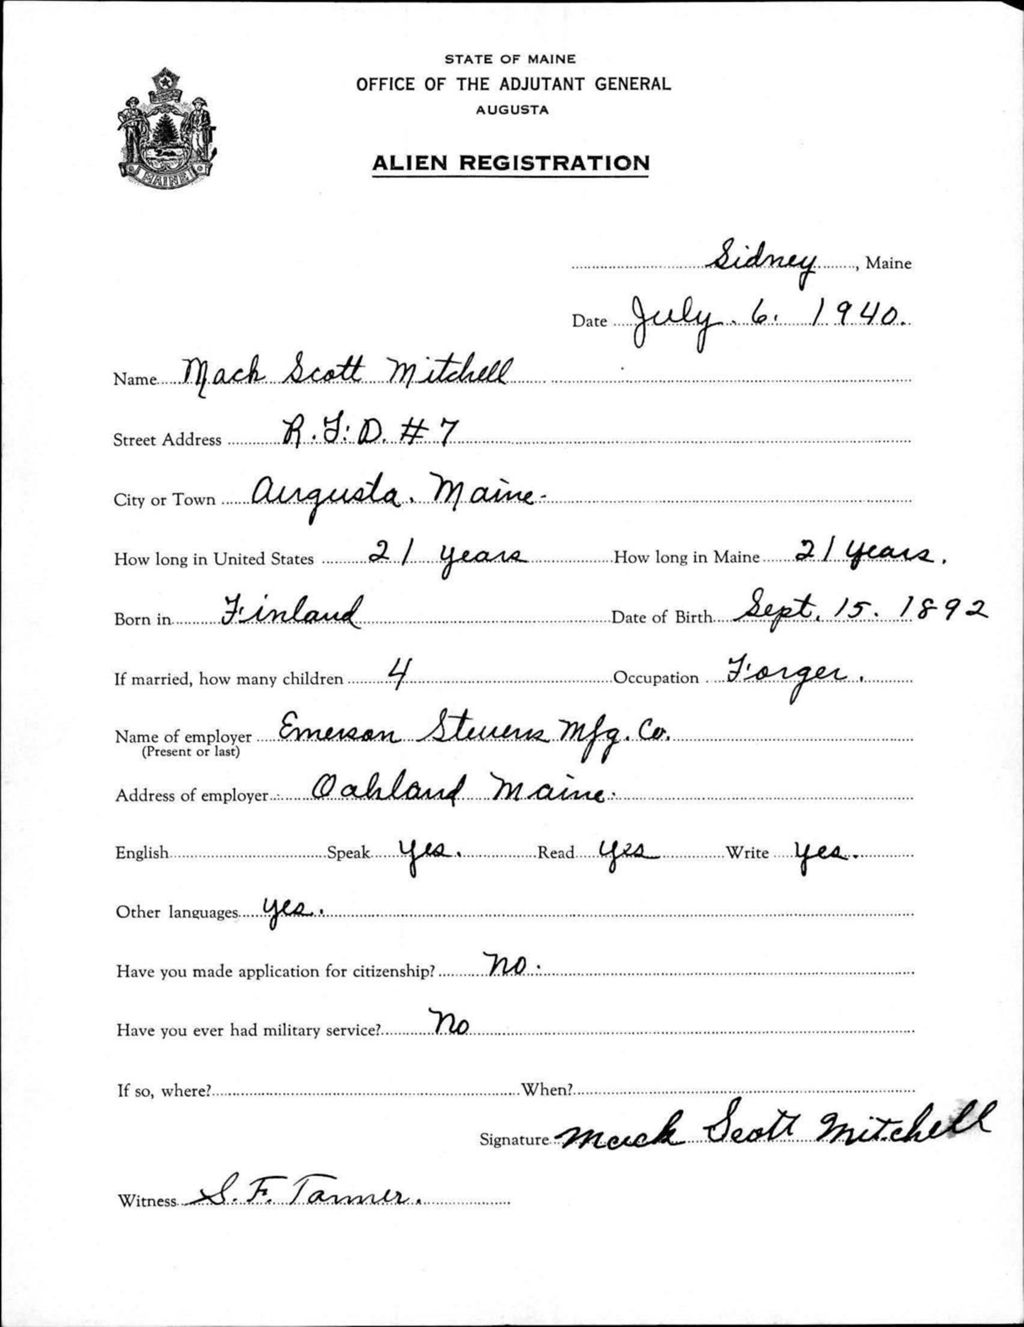 STATE OF MAINE
OFFICE OF THE ADJUTANT GENERAL
AUGUSTA
ALIEN REGISTRATION
MAINE
Sidney, Maine
Date July. 6. 1940.
Name Mack Scott Mitchell
Street Address R.F.D. #7
City or Town Augusta. Maine-
How long in United States 21 years How long in Maine 21 years.
Born in Finland Date of Birth Sept. 15. 1892
If married, how many children 4 Occupation Forger.
Name of employer Emerson Stevens Mfg. Co.
(Present or last)
Address of employer Oakland Maine.
English Speak yes. Read yes Write yes.
Other languages yes.
Have you made application for citizenship? no.
Have you ever had military service? no
If so, where? When?
Signature Mack Scott Mitchell
Witness S. F. Tanner.